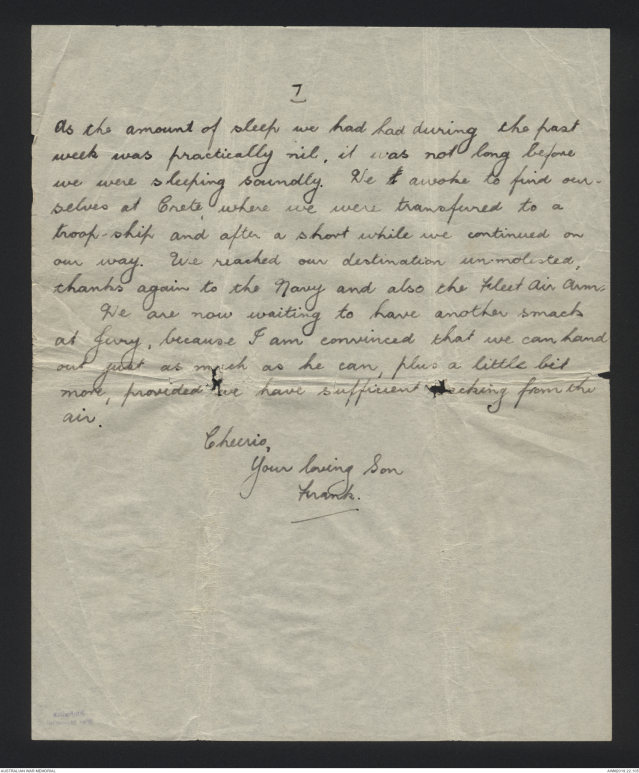 7
As the amount of sleep we had had during the past
week was practically nil, it was not long before
we were sleeping soundly. We awoke to find our-
selves at Crete, where we were transfured to a
troop-ship and after a short while we continued on
our way. We reached our destination unmolested,
thanks again to the Navy and also the Fleet Air Arm.
We are now waiting to have another smack
at Jerry, because I am convinced that we can hand
out just as much as he can, plus a little bit
more, provided we have sufficient backing from the
air.
Cheerio,
Your loving Son
Frank.
AUSTRALIAN WAR MEMORIAL